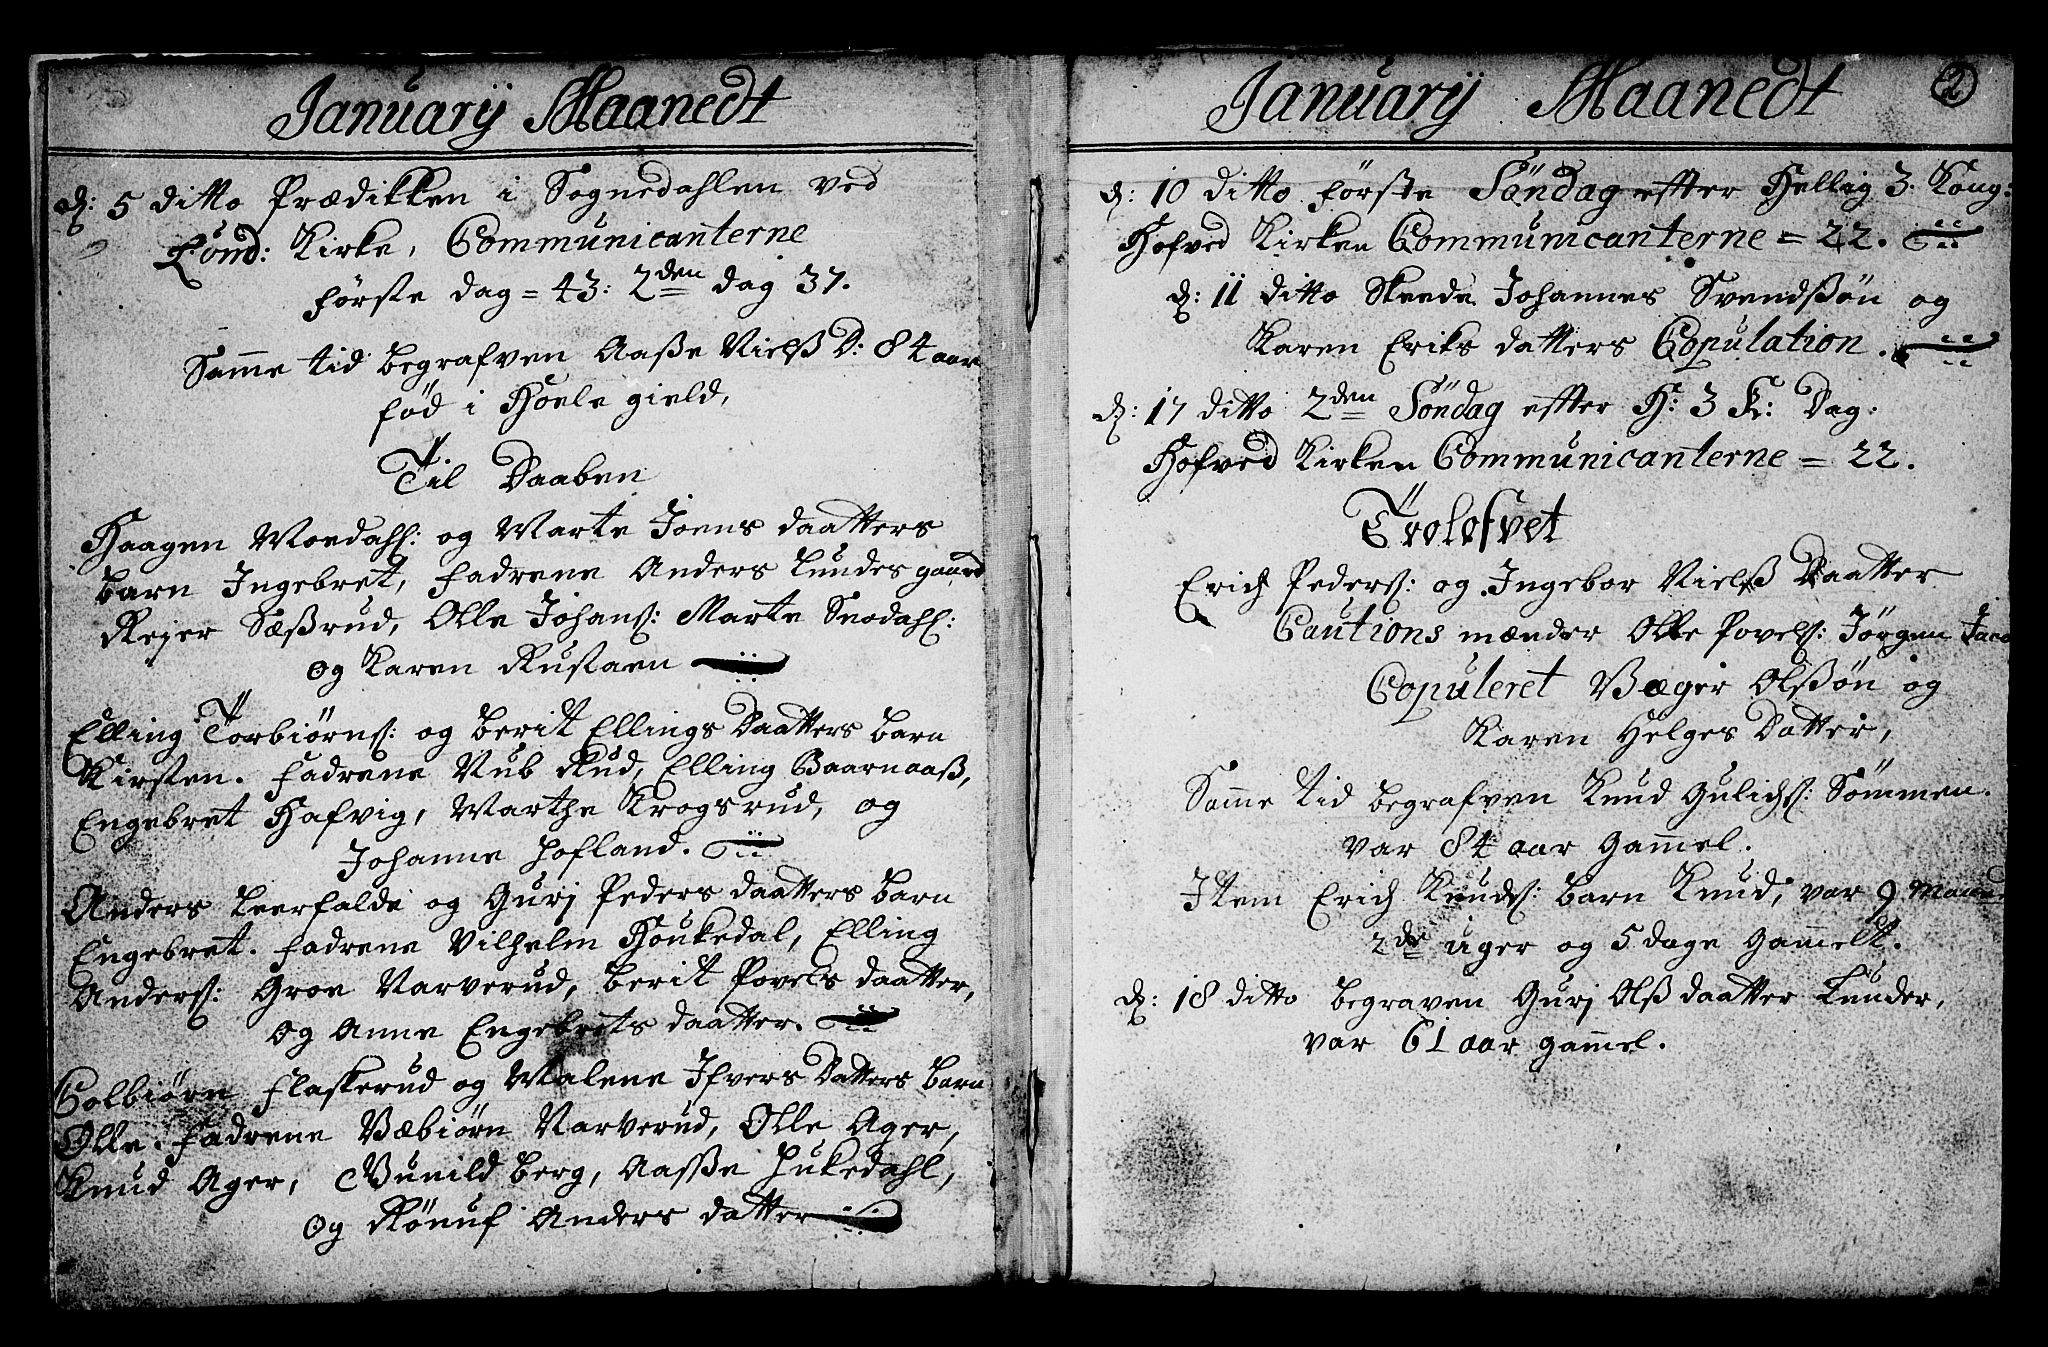 Januarÿ Maanedt
d: 5 ditto Prædikken i Sognedahlen ved
Lund: Kirke, Communicanterne
første dag = 43: 2den dag 37.
Samme tid begrafven Aaße Nielß D: 84 aar
fød i Hoele gield,
Til Daaben
Haagen Moedahl: og Marte Joens daatters
barn Ingebret, fadrene Anders Lundesgaard
Rejer Sæßrud, Olle Johans: Marte Snodahl:
og Karen Rustaen
Elling Torbiørns: og Berit Ellings Daatters barn
Kirsten. fadrene Nub Rud, Elling Baarnaaß,
Engebret Hafvig, Marthe Krogsrud, og
Johanne Hofland.
Anders Leerfalde og Gurj Peders daatters barn
Engebret. fadrene Vilhelm Houkedal, Elling
Anders: Groe Narverud, Berit Povels daatter,
og Anne Engebrets daatter.
Colbiørn Flaskerud og Malene Ifvers Datters barn
Olle. fadrene Væbiørn Narverud, Olle Ager,
Knud Ager, Gunild Berg, Aasße Hukedahl,
og Rönuf Anders datter
Januarÿ Maanedt 2
d: 10 ditto første Söndag effter Hellig 3. Kong:
Hofved Kirken Communicanterne = 22.
d: 11 ditto Skeede Johannes Svendßøn og
Karen Eriks datters Copulation.
d: 17 ditto 2den Söndag effter H: 3 K: Dag:
Hofved Kirken Communicanterne = 22.
Trolofvet
Erich Peders: og Ingebor Nielß Daatter
Cautions mænder Olle Povels: Jörgen Jaco
Copuleret Væger Olßøn og
Karen Helges Datter,
Samme tid begrafven Knud Gulichs: Sömmen.
var 84 aar Gam̄el.
Item Erich Knuds: barn Knud, var 9 Maan
2de uger og 5 dage Gam̄elt.
d: 18 ditto begraven Gurj Olß daatter Lunder,
var 61 aar gam̄el.